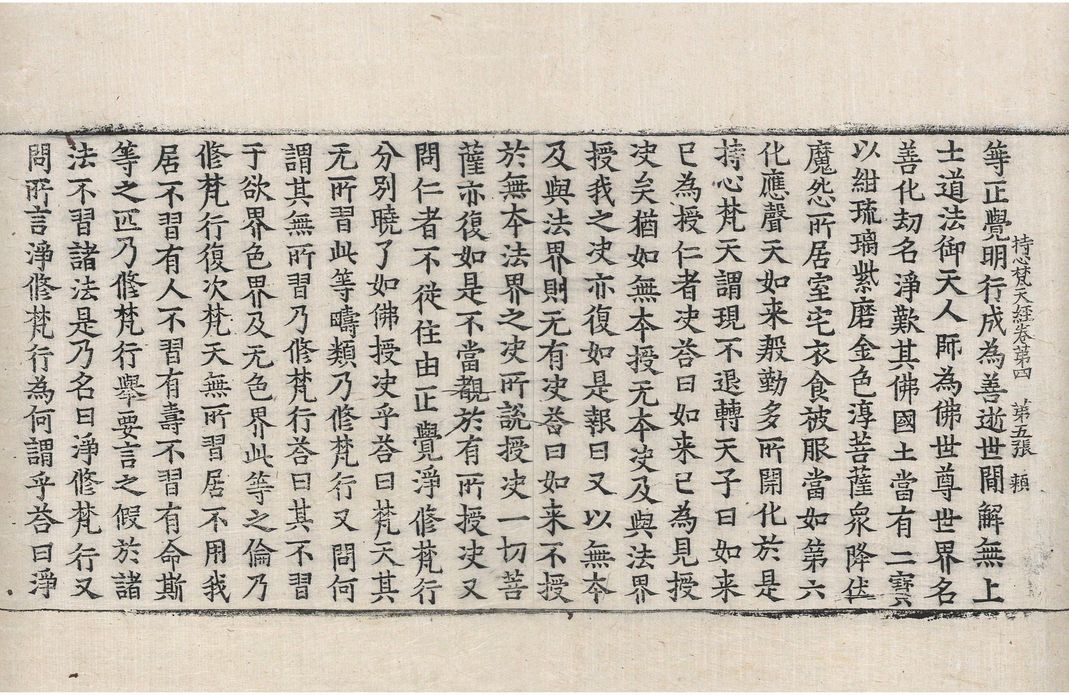 持心梵天經卷第四　第五張　頼
等正覺明行成為善逝世間解無上
士道法御天人師為佛世尊世界名
善化劫名淨歎其佛國土當有二寶六
以紺琉璃紫磨金色淳菩薩衆降伏
魔怨所居室宅衣食被服當如第六
化應聲天如来慇勤多所開化於是
持心梵天謂現不退轉天子曰如来
已為授仁者决荅曰如来已為見授
决矣猶如無本授无本决及與法界
授我之决亦復如是報曰又以無本
及與法界則无有决荅曰如来不授
於無本法界之决所說授决一切菩
薩亦復如是不當覩於有所授决又
問仁者不從住由正覺淨修梵行
分別曉了如佛授决乎荅曰梵天其
无所習此等疇類乃修梵行又問何
謂其無所習乃修梵行荅曰其不習
于欲界色界及无色界此等之倫乃
修梵行復次梵天無所習居不用我
居不習有人不習有壽不習有命斯
等之匹乃修梵行舉要言之假於諸
法不習諸法是乃名曰淨修梵行又
問所言淨修梵行為何謂乎荅曰淨